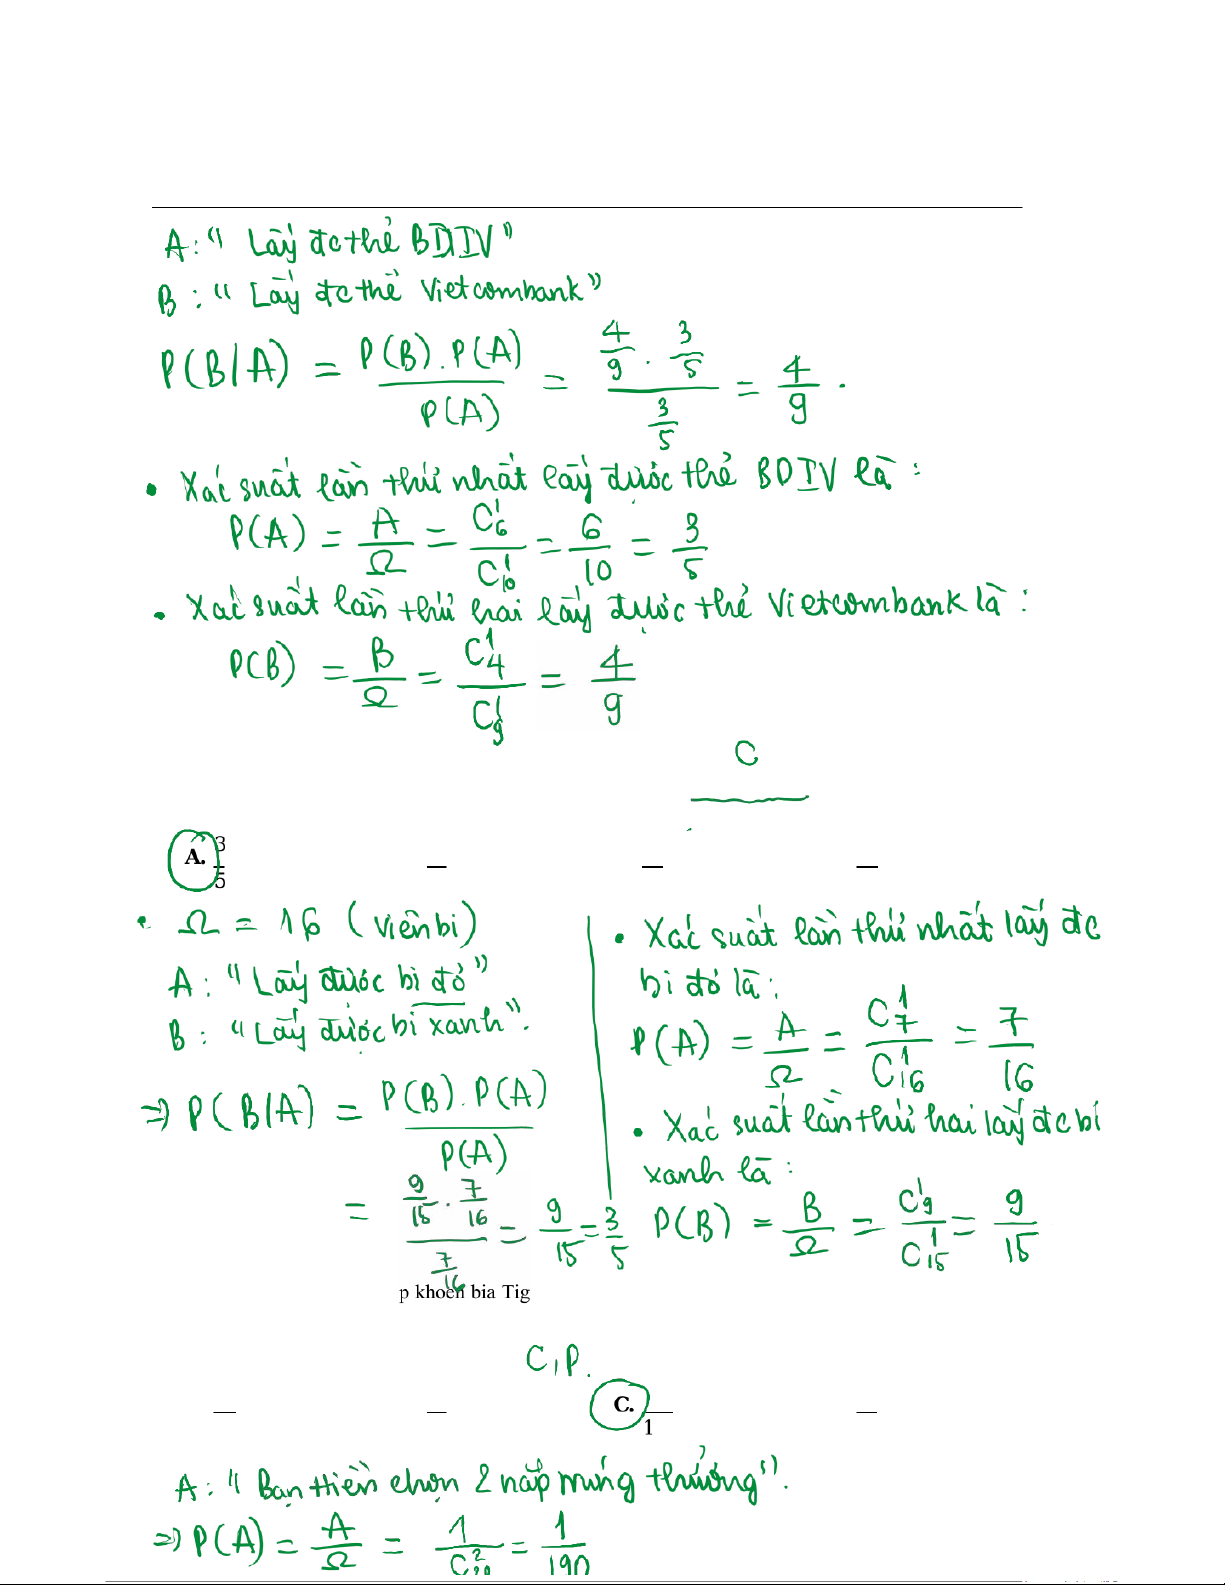 A: " Lấy đc thẻ BDIV"
B: " Lấy đc thẻ Vietcombank"
P(B/A) = P(B).P(A) / P(A) = (4/9 . 3/5) / (3/5) = 4/9 .
• Xác suất lần thứ nhất lấy được thẻ BDIV là :
P(A) = A/Ω = C¹₆/C¹₁₀ = 6/10 = 3/5
• Xác suất lần thứ hai lấy được thẻ Vietcombank là :
P(B) = B/Ω = C¹₄/C¹₉ = 4/9
C
A. 3/5
• Ω = 16 (viên bi)
A: "Lấy được bi đỏ"
B: "Lấy được bi xanh".
=> P(B/A) = P(B).P(A) / P(A)
= (9/15 . 7/16) / (7/16) = 9/15 = 3/5
• Xác suất lần thứ nhất lấy đc
bi đỏ là :
P(A) = A/Ω = C¹₇/C¹₁₆ = 7/16
• Xác suất lần thứ hai lấy đc bi
xanh là :
P(B) = B/Ω = C¹₉/C¹₁₅ = 9/15
p khoen bia Tig
C,P.
C. 1
A: "Bạn Hiền chọn 2 nắp trúng thưởng".
=> P(A) = A/Ω = 1/C²₂₀ = 1/190